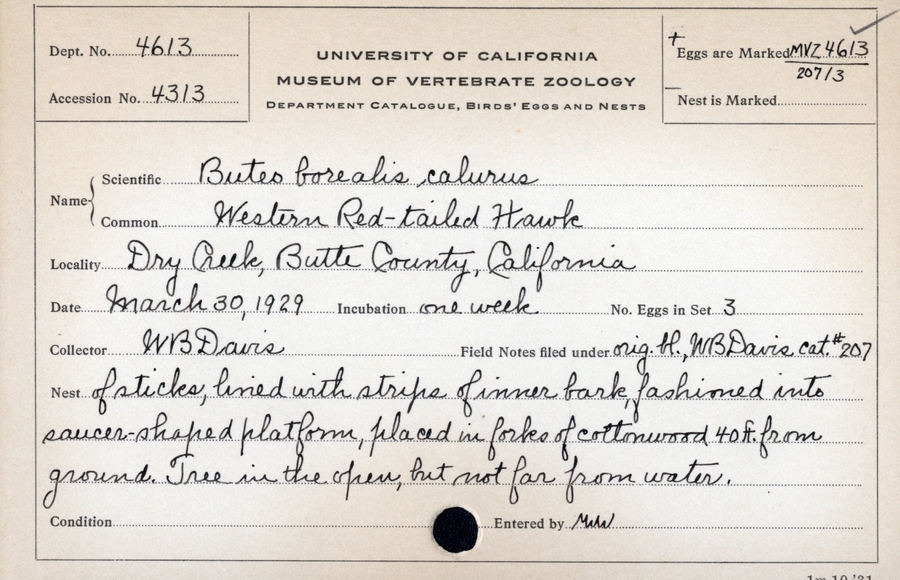 Dept. No. 4613
Accession No. 4313
UNIVERSITY OF CALIFORNIA
MUSEUM OF VERTEBRATE ZOOLOGY
DEPARTMENT CATALOGUE, BIRDS' EGGS AND NESTS
+ Eggs are Marked MVZ 4613
207/3
— Nest is Marked
Name { Scientific Buteo borealis calurus
Common Western Red-tailed Hawk
Locality Dry Creek, Butte County, California
Date March 30, 1929 Incubation one week No. Eggs in Set 3
Collector WBDavis Field Notes filed under orig. bl., WBDavis cat. #207
Nest of sticks, lined with strips of inner bark, fashioned into
saucer-shaped platform, placed in forks of cottonwood 40 ft. from
ground. Tree in the open, but not far from water.
Condition Entered by
1m 10 '31